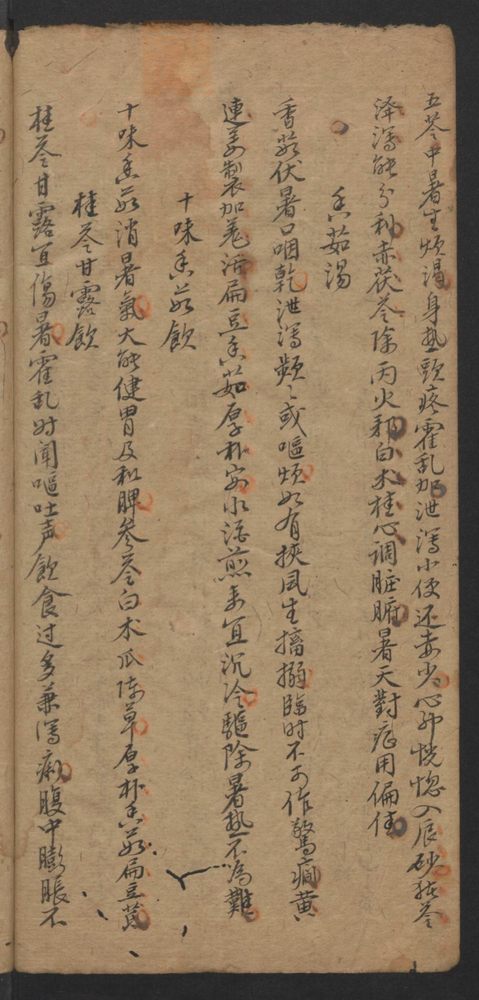 五苓中暑生煩渴身热頭疼霍乱加泄瀉小便还赤少心神恍惚入辰砂猪苓
泽瀉能分利赤茯苓除丙火邪白术桂心调脏腑暑天對症用偏佳
香茹湯
香茹伏暑口咽乾泄瀉頻々或嘔煩如有挾风生搐搦临时不可作驚癎黄
連姜製加羌活扁豆香茹厚朴安水酒煎来宜沉冷驅除暑热不為難
十味香茹飲
十味香茹消暑氣大能健胃及和脾参苓白术瓜陈草厚朴香茹扁豆茋
桂苓甘露飲
桂苓甘露宜傷暑霍乱时闻嘔吐声飲食过多兼瀉痢腹中膨脹不